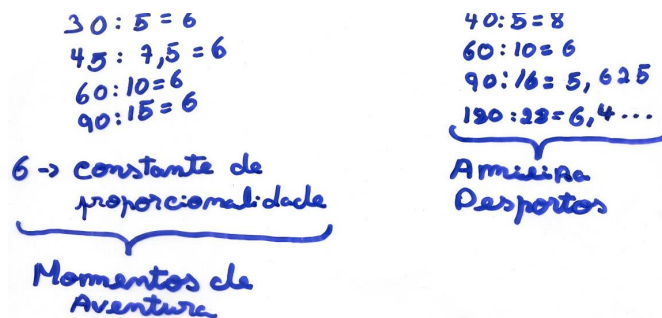 30:5=6
45:7,5=6
60:10=6
90:15=6
6 -> constante de
proporcionalidade
Momentos de
Aventura
40:5=8
60:10=6
90:16=5,625
180:28=6,4...
Amieira
Desportos